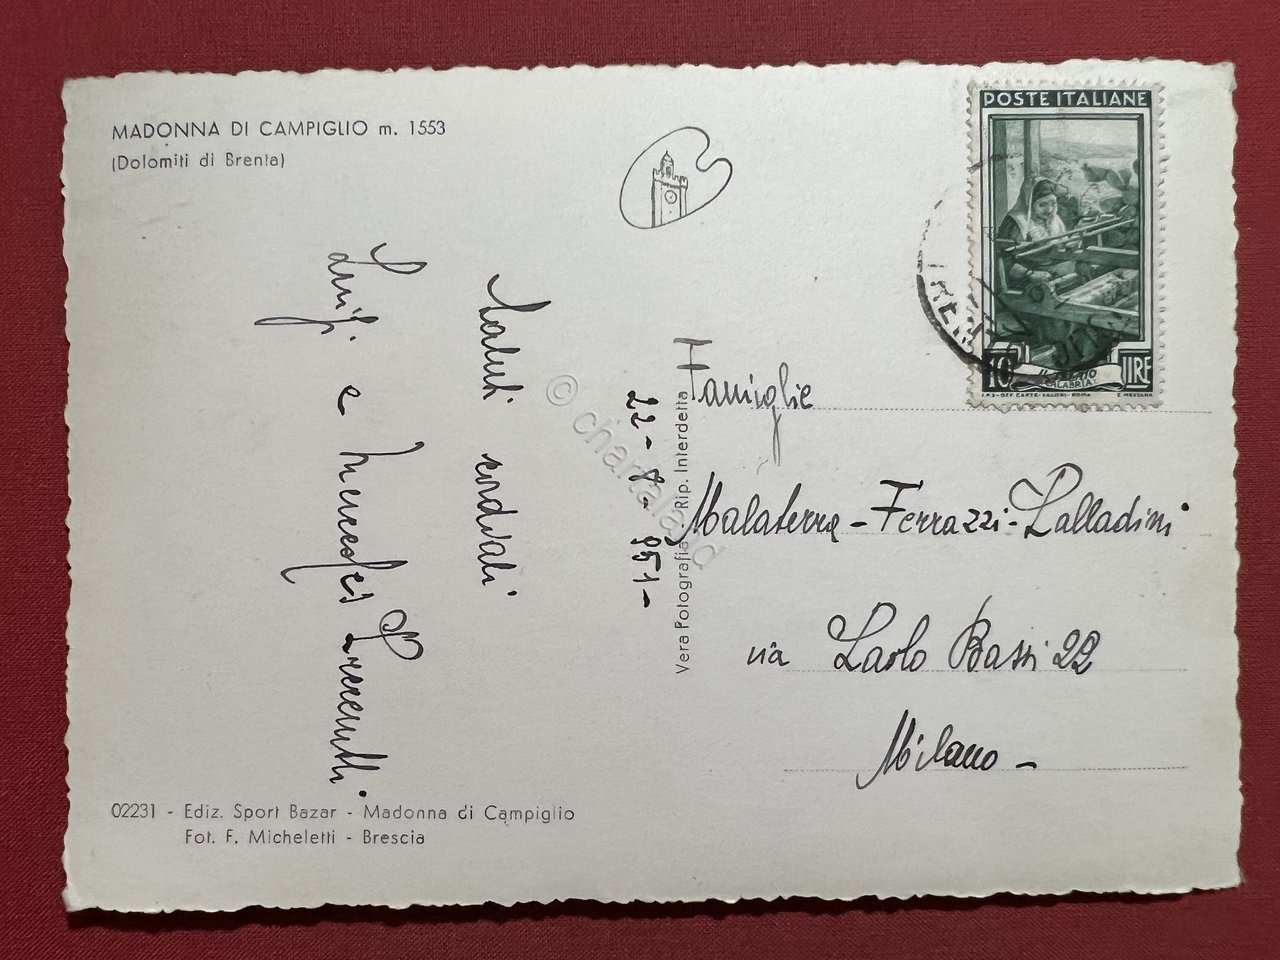 MADONNA DI CAMPIGLIO m. 1553
(Dolomiti di Brenta)
POSTE ITALIANE
10 LIRE
IL TELAIO
CALABRIA
I.P.S. - OFF. CARTE-VALORI - ROMA
E. MEZZANA
22-8-951-
Saluti cordiali
Luigi e
Vera Fotografia - Rip. Interdetta
Famiglie
Malaterra - Ferrazzi - Palladini
via Paolo Bassi 22
Milano -
02231 - Ediz. Sport Bazar - Madonna di Campiglio
Fot. F. Micheletti - Brescia
© chartaland